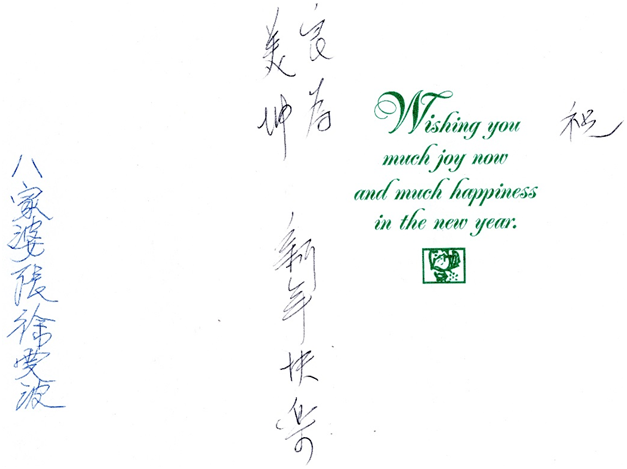 祝
Wishing you
much joy now
and much happiness
in the new year.
良為
美坤
新年快樂
八家婆張徐雯波